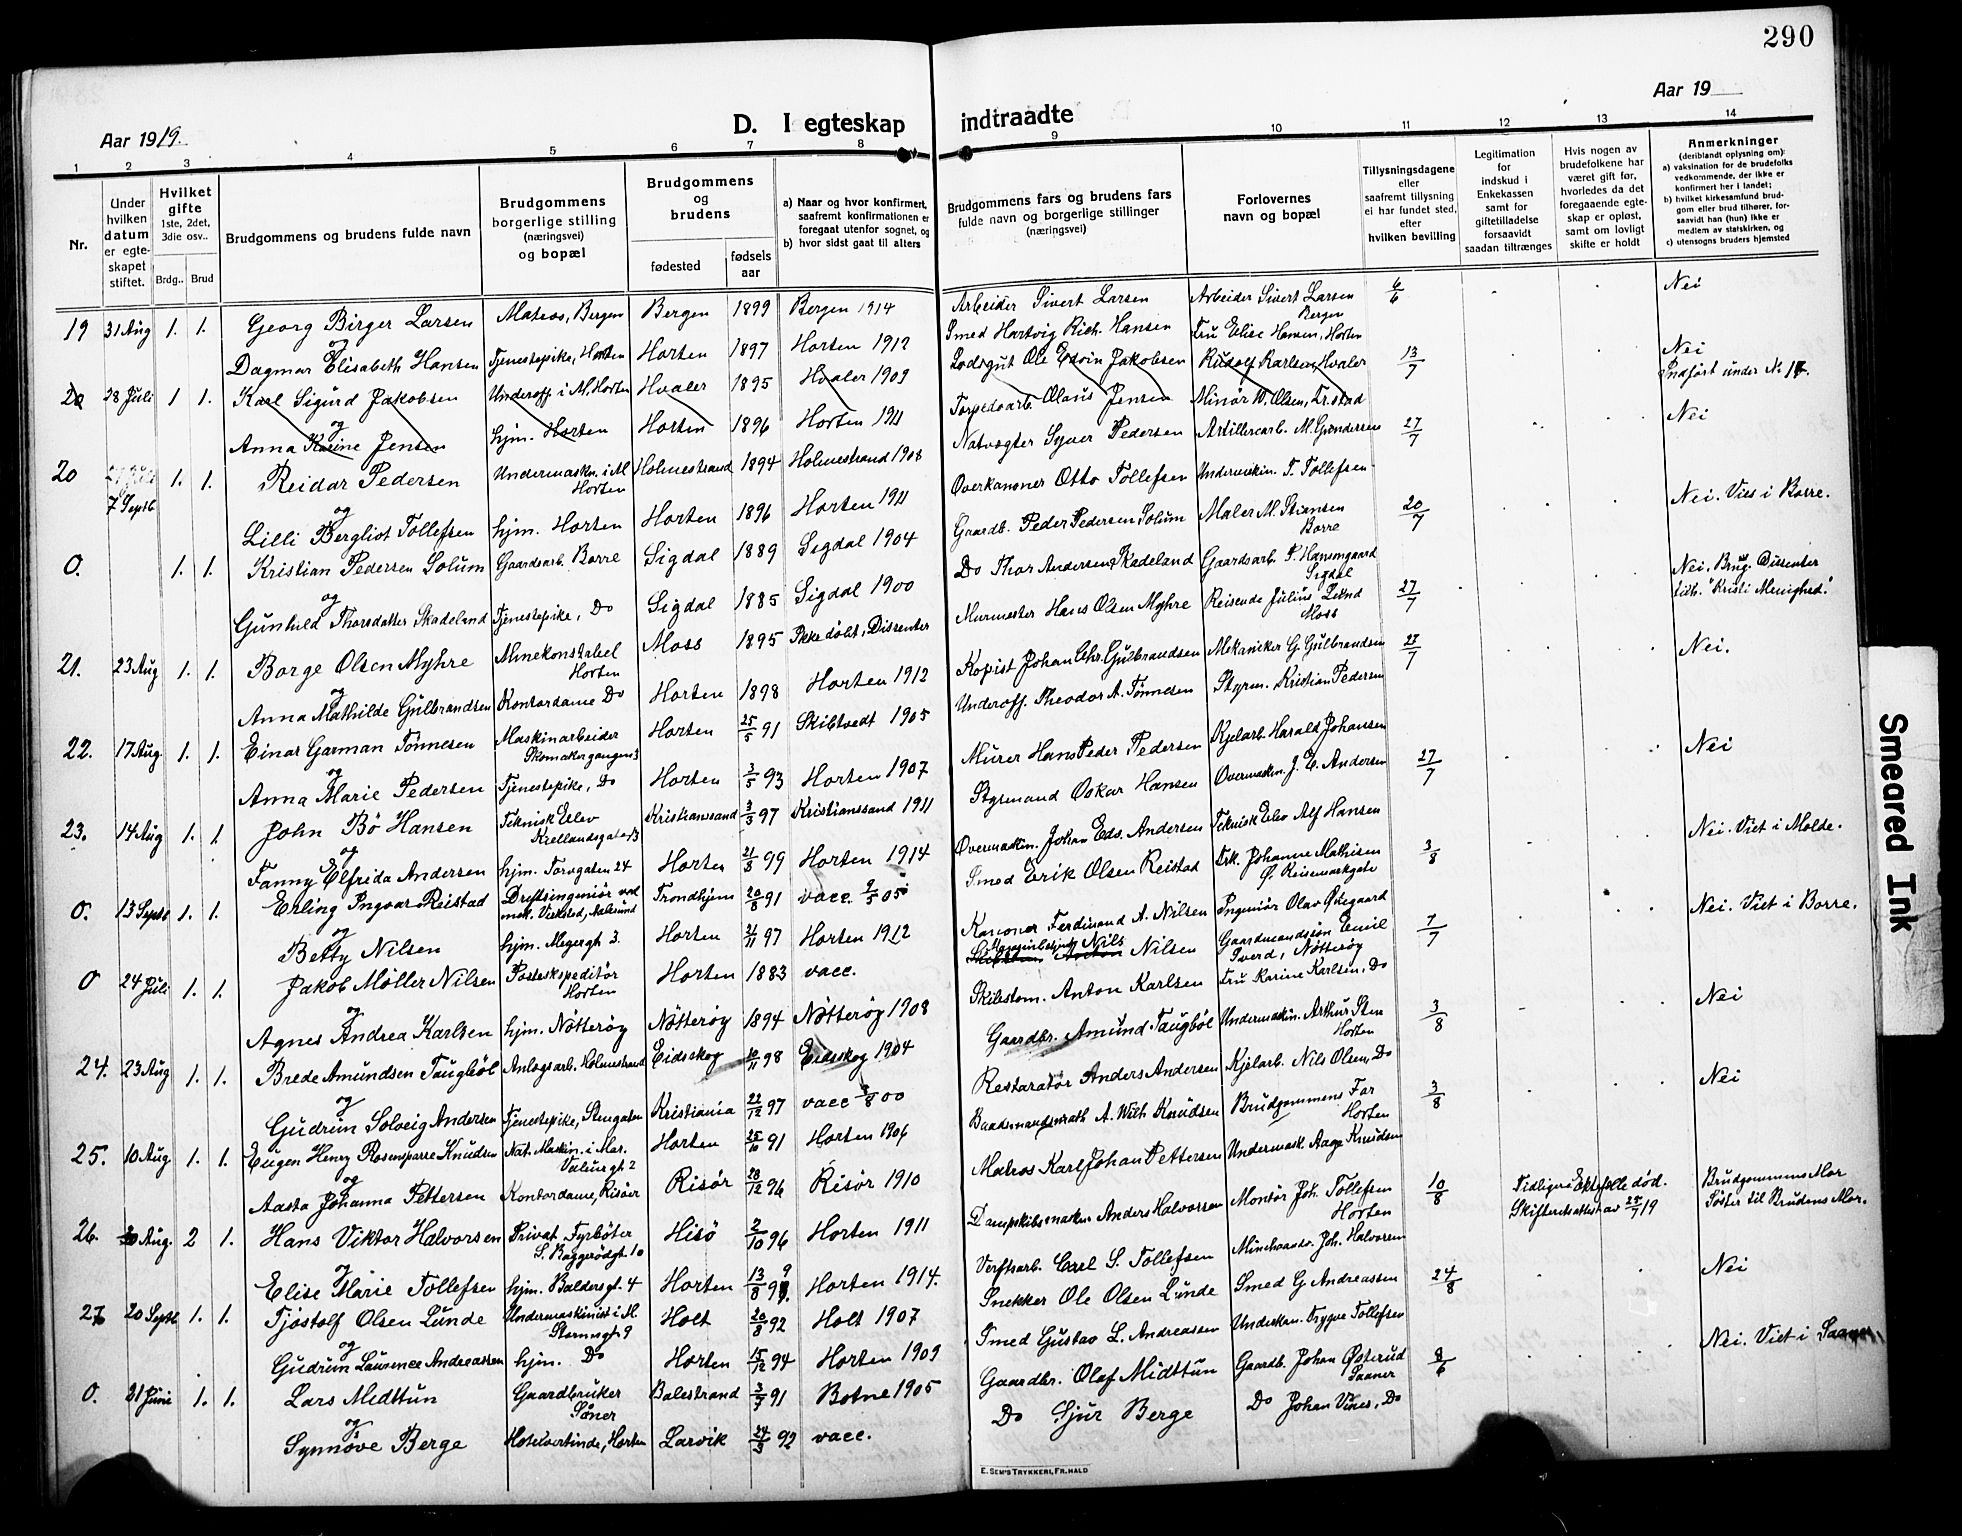 290
Aar 1919.
D. I egteskap indtraadte
Aar 19
1 2 3 4 5 6 7 8 9 10 11 12 13 14
Nr.
Under hvilken datum er egteskapet stiftet.
Hvilket gifte 1ste, 2det, 3die osv..
Brdg.. Brud
Brudgommens og brudens fulde navn
Brudgommens borgerlige stilling (næringsvei) og bopæl
Brudgommens og brudens
fødested
fødsels aar
a) Naar og hvor konfirmert, saafremt konfirmationen er foregaat utenfor sognet, og
b) hvor sidst gaat til alters
Brudgommens fars og brudens fars fulde navn og borgerlige stillinger (næringsvei)
Forlovernes navn og bopæl
Tillysningsdagene eller saafremt tillysning ei har fundet sted, efter hvilken bevilling
Legitimation for indskud i Enkekassen samt for giftetilladelse forsaavidt saadan tiltrænges
Hvis nogen av brudefolkene har været gift før, hvorledes da det foregaaende egteskap er opløst, samt om lovligt skifte er holdt
Anmerkninger (deriblandt oplysning om):
a) vaksination for de brudefolks vedkommende, der ikke er konfirmert her i landet;
b) hvilket kirkesamfund brudgom eller brud tilhører, forsaavidt han (hun) ikke er medlem av statskirken, og
c) utensogns bruders hjemsted
19 31 Aug 1. 1. Georg Birger Larsen Matros, Bergen Bergen 1899 Bergen 1914 Arbeider Sivert Larsen Arbeider Sivert Larsen Bergen 6/6 Nei
og
Dagmar Elisabeth Hansen Tjenestepike, Horten Horten 1897 Horten 1912 Smed Hartvig Rich. Hansen Fru Elise Hansen, Horten
20 28 Juli 1 1. Karl Sigurd Jakobsen Underoff. i M. Horten Hvaler 1895 Hvaler 1909 Lodsgut Ole Edvin Jakobsen Rudolf Karlsen, Hvaler 13/7 Nei Indført under N. 17.
og
Anna Karine Jensen hjm. Horten Horten 1896 Horten 1911 Torpedoarb. Olaus Jensen Minør W. Olsen, Fr.stad
20 7 Septb 1. 1. Reidar Pedersen Undermaskn. i M. Horten Holmestrand 1894 Holmestrand 1908 Natvogter Syver Pedersen Artilleriarb. M. Gundersen 27/7 Nei
og
Lilli Bergliot Tollefsen hjm. Horten Horten 1896 Horten 1911 Overkanoner Otto Tollefsen Undermaskin. T. Tollefsen
0. 1. 1. Kristian Pedersen Solum Gaardsarb. Borre Sigdal 1889 Sigdal 1904 Gaardb. Peder Pedersen Solum Maler M. Stiansen Borre 20/7 Nei. Vies i Borre.
og
Gunhild Thorsdatter Skadeland Tjenestepike, Do Sigdal 1885 Sigdal 1900 Do Thor Andersen Skadeland Gaardsarb. Hansengaard Sigdal
21. 23 Aug 1. 1. Borge Olsen Myhre Minekonstabel Horten Moss 1895 Ikke døbt, Dissenter Murmester Hans Olsen Myhre Reisende Julius Lund Moss 27/7 Nei. Brug. Dissenter tilh. "Kristi Menighed."
og
Anna Mathilde Gulbrandsen Kontordame Do Horten 1898 Horten 1912 Kopist Johan Chr. Gulbrandsen Mekaniker G. Gulbrandsen
22. 17 Aug 1. 1. Einar Garman Tønnesen Maskinarbeider Skomakergangen 3 Horten 25/5 91 Skibtvedt 1905 Underoff. Theodor A. Tønnesen Styrm. Kristian Pedersen 27/7 Nei.
og
Anna Marie Pedersen Tjenestepike, Do Horten 3/5 93 Horten 1907 Murer Hans Peder Pedersen Kjelarb. Harald Johansen
23. 14 Aug 1. 1. John Bø Hansen Teknisk Elev Kiellandsgate 13 Kristianssand 3/3 97 Kristianssand 1911 Styrmand Oskar Hansen Teknisk Elev Alf Hansen 27/7 Nei
og
Fanny Elfrida Andersen hjm. Torvgaten 24 Horten 21/3 99 Horten 1914 Overmaskin. Johan Edv. Andersen Overmaskin. J. E. Andersen
0. 13 Septb 1. 1. Erling Ingvar Reistad Driftsingeniør ved mek. Verksted, Aalesund Trondhjem 20/8 91 vacc. 9/5 05 Smed Erik Olsen Reistad Ingeniør Olav Øvegaard 3/8 Nei. Viet i Molde.
og
Betty Nilsen hjm. Mogergt. 3. Horten 21/11 97 Horten 1912 Kanoner Ferdinand A. Nilsen Frk. Johanne Mathisen Ø. Reisemarkgate
0 24 Juli 1. 1. Jakob Møller Nilsen Postekspeditør Horten Horten 1883 vacc. Nils Nilsen Gaardmandssøn Emil Sverd, Nøtterøy 7/7 Nei. Viet i Borre.
og
Agnes Andrea Karlsen hjm. Nøtterøy Nøtterøy 1894 Nøtterøy 1908 Skibstøm. Anton Karlsen Fru Karine Karlsen, Do
24. 23 Aug 1. 1. Brede Amundsen Taugbøl Anlogsarb. Holmestrand Eidskog 10/11 98 Eidskog 1904 Gaardbr. Amund Taugbøl Undermaskin. Arthur Sten Horten 3/8 Nei
og
Gudrun Solveig Andersen Tjenestepike, Storgaten Kristiania 22/12 97 vacc 3/8 00 Restaratør Anders Andersen Kjelarb. Nils Olsen, Do
25. 10 Aug 1. 1. Eugen Henry Rosensparre Knudsen Nat. Maskin. i Mar. Valusgt. 2 Horten 25/6 91 Horten 1906 Baadsmandsmath A. Wilh. Knudsen Brudgommens Far Horten 3/8 Nei
og
Aasta Johanna Pettersen Kontordame, Risøer Risør 28/12 96 Risør 1910 Matros Karl Johan Pettersen Undermask. Aage Knudsen
26. 30 Aug. 2 1. Hans Viktor Halvorsen Privat Fyrbøter S. Baggerødgt. 10 Hisø 2/10 96 Horten 1911 Dampskibsmaskn. Anders Halvorsen Montør Joh. Tollefsen Horten 10/8 Tidligere Ektefelle død. Skifteretsattest av 25/7 19 Brudgommens Mor Søster til Brudens Mor.
og
Elise Marie Tollefsen hjm. Baldersgt. 4 Horten 13/8 99. Horten 1914. Verftsarb. Carl S. Tollefsen Joh. Halvorsen
27 20 Septb 1. 1. Tjøstolf Olsen Lunde Undermaskinist i M. Stormsgt 9 Holt 20/8 92 Holt 1907 Snekker Ole Olsen Lunde Smed G. Andreassen 24/8 Nei
og
Gudrun Laurence Andreassen hjm. Do Horten 15/12 94 Horten 1909 Smed Gustav L. Andreassen Underkan. Trygve Tollefsen
0. 21 Juni 1. 1. Lars Midttun Gaardbruker Såner Balestrand 3/7 91 Botne 1905 Gaardbr. Olaf Midttun Gaardb. Johan Østerud Saaner 8/6 Nei. Viet i Saaner
og
Synnøve Berge Hotelvertinde, Horten Larvik 24/3 92 vacc. Do Sjur Berge Do Johan Vines, Do
E. SEM'S TRYKKERI, FR.HALD
Smeared Ink